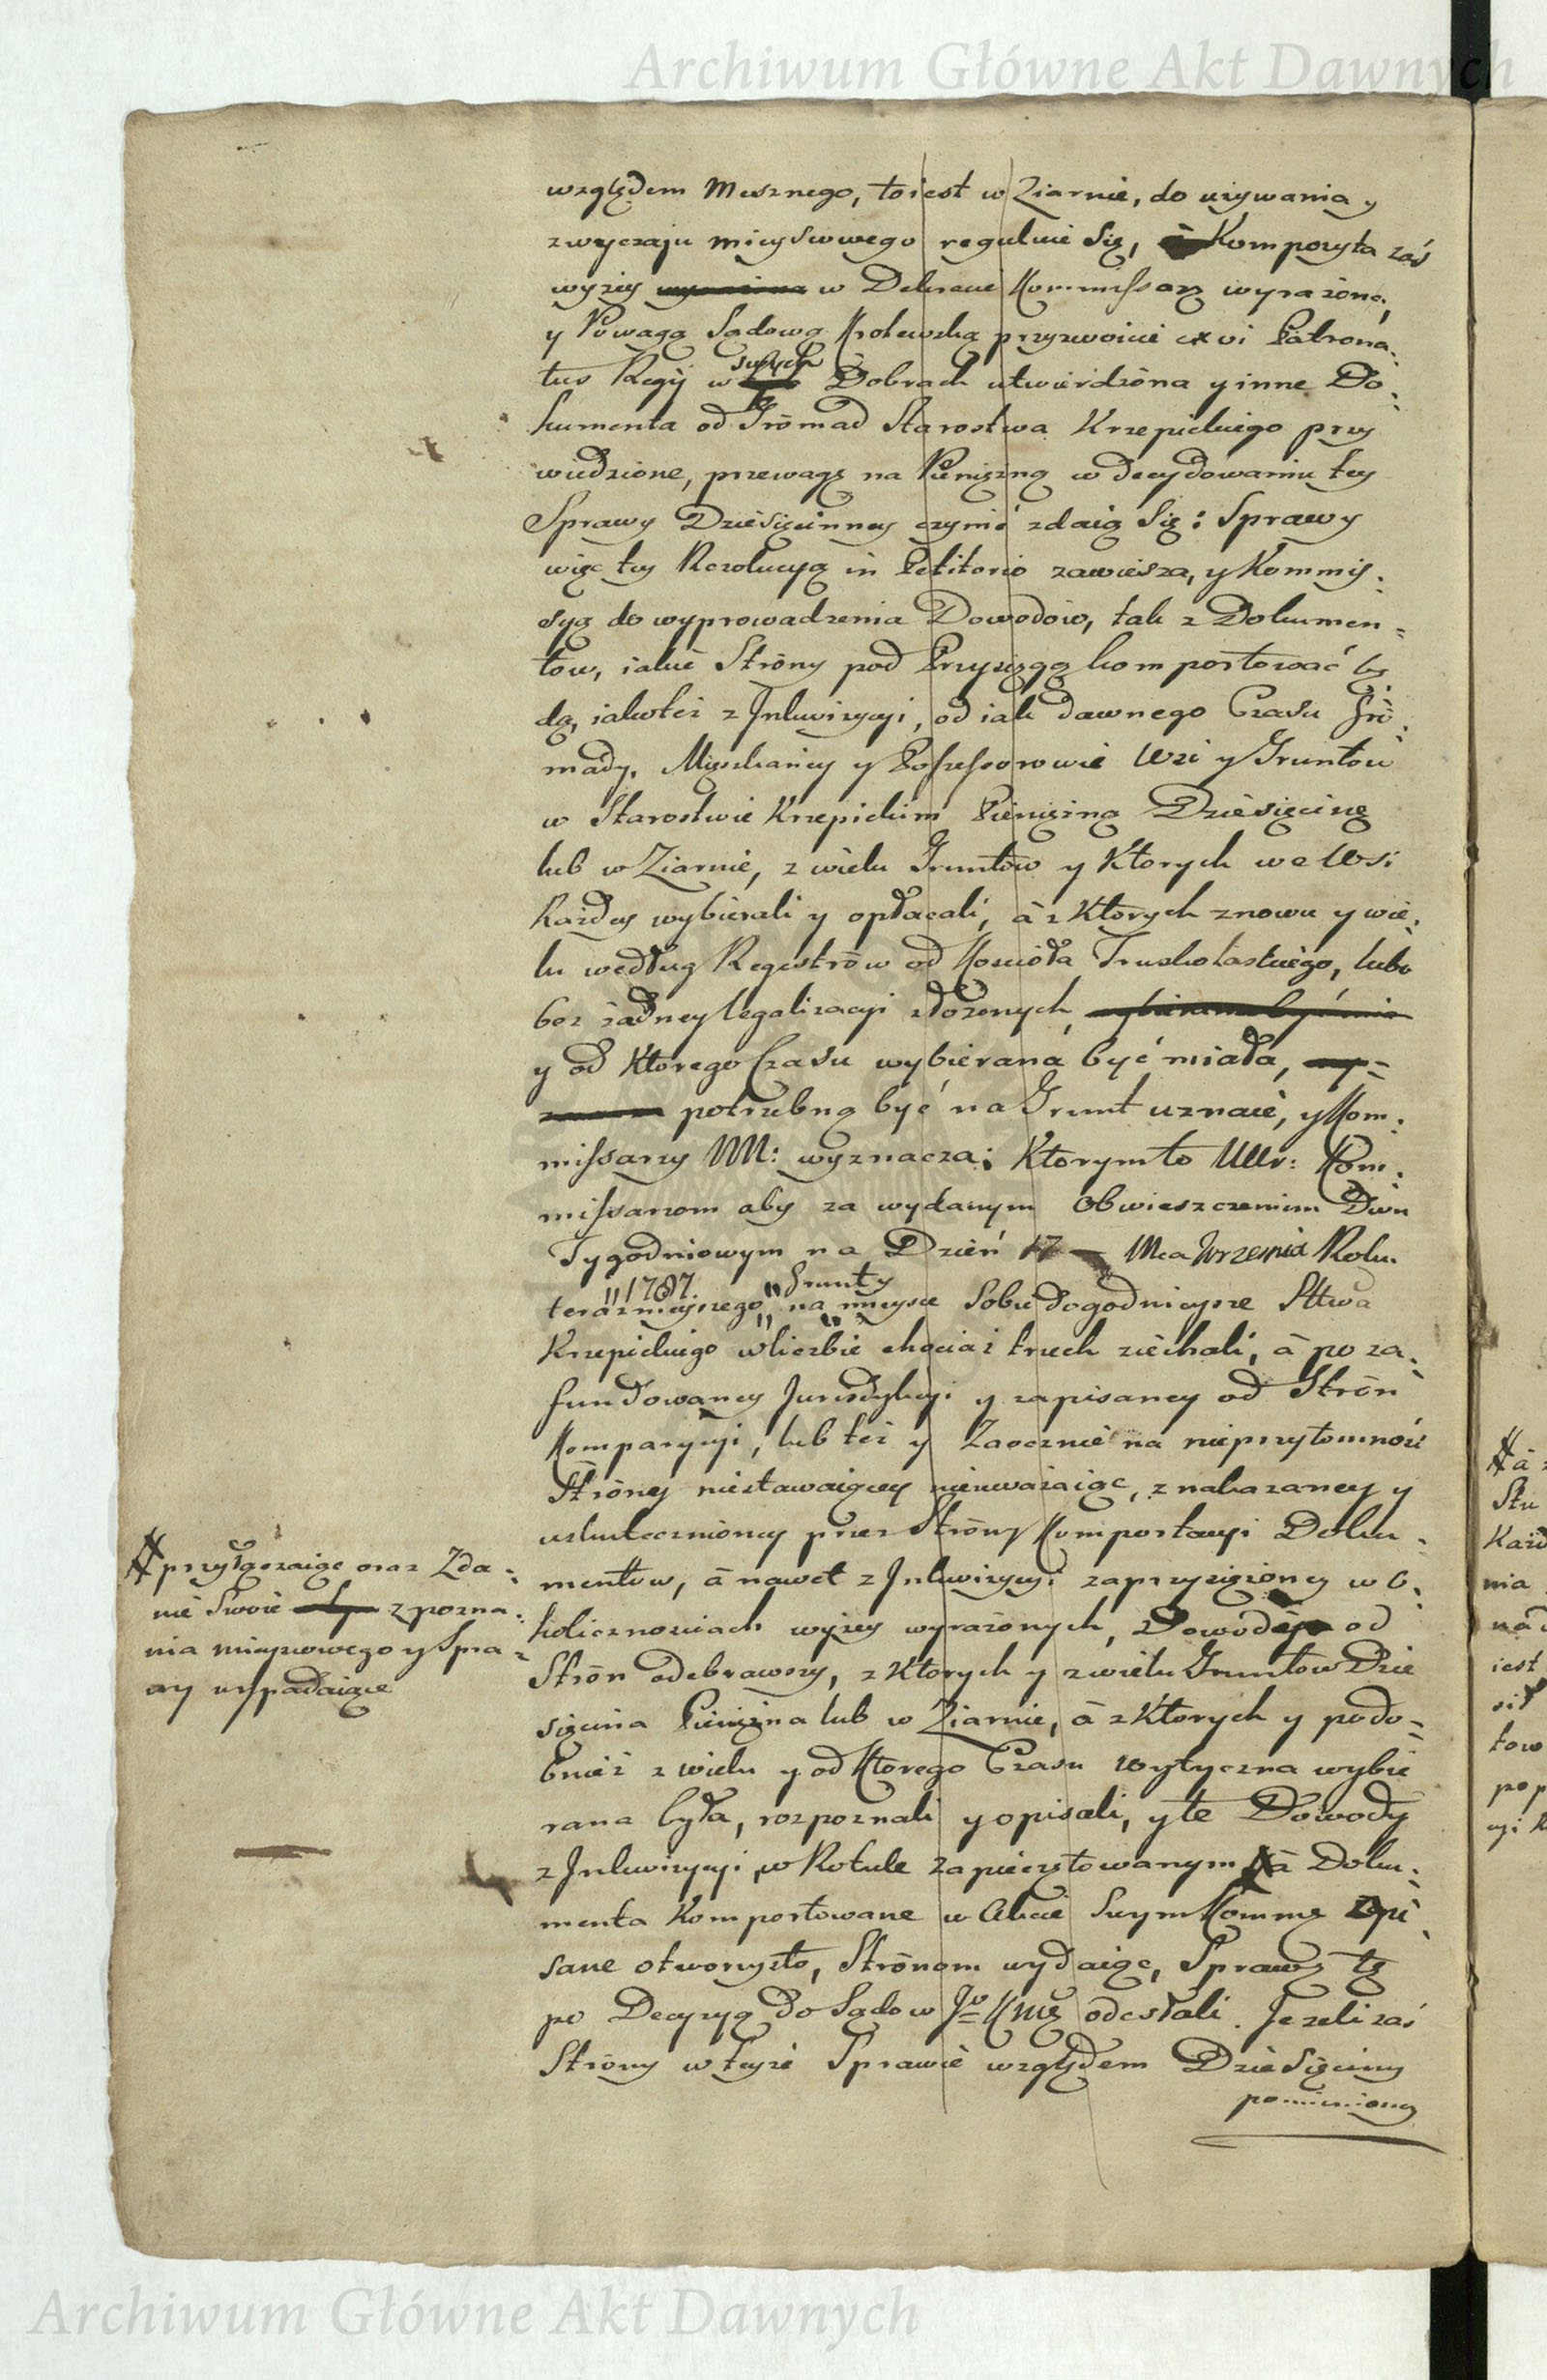 Archiwum Główne Akt Dawnych
względem Mesznego, toiest w Ziarnie, do używania y
zwyczaiu mieyscowego reguluie się, Kompozyta zaś
wyżey w Dekrecie Kommissarz wyrażona,
y Powagą Sądową Krolewską przyzwoicie ex vi Patrona:
tus Regij w swych Dobrach utwierdzona y inne Do:
kumenta od Gromad Starostwa Krzepickiego przy
wiedzione, przewagę na Pieniężną w decydowaniu tey
Sprawy Dziesięcinney czynić zdaią się: Sprawy
więc tey Rezolucyą in Petitorio zawiesza, y Kommis:
syą do wyprowadzenia Dowodow, tak z Dokumen=
tow, iakie Strony pod Przysięgą komportować bę
dą, iakoteż z Inkwizycyi, od iak dawnego Czasu Gro:
mady, Mieszkańcy y Possessorowie Wsi y Gruntow
w Starostwie Krzepickim Pieniężną Dziesięcinę
lub w Ziarnie, z wielu Gruntow y Ktorych we Wsi
Każdey wybierali y opłacali, à z Ktorych znowu y wie:
lu według Regestrow od Kościoła Truskolaskiego, lubo
bez żadney legalizacyi złożonych,
y od Ktorego Czasu wybierana być miała,
potrzebną być na Grunt uznaie, y Kom:
missarzy NN: wyznacza; Ktorymto Urr: Kom:
missarzom aby za wydanym Obwieszczeniem Dwu
Tygodniowym na Dzień 17 Mca Września Roku
1787 Grunty
teraznieyszego na mieysce Sobie dogodnieysze Sttwa
Krzepickiego w liczbie chociaż trzech ziechali, à po za:
fundowaney Jurisdykcyi y zapisaney od Stron
Komparycyi, lub też y Zaocznie na nieprzytomność
Strony niestawaiącey nieuważaiąc, z nakazaney y
uskutecznioney przez Strony Komportacyi Doku:
mentow, à nawet z Inkwizycyi zaprzysiężoney w o:
kolicznościach wyżey wyrażonych, Dowody od
Stron odebrawszy, z Ktorych y z wielu Gruntow Dzie
sięcina Pieniężna lub w Ziarnie, à z Ktorych y podo=
bnież z wielu y od Ktorego Czasu wytyczna wybie
rana była, rozpoznali y opisali, y te Dowody
z Inkwizycyi, w Rotule zapieczętowanym # à Doku:
menta Komportowane w Akcie Swym Kommę Opi
sane otworzysto, Stronom wydaiąc, Sprawę tę
po Decyzyą do Sądow Jo KMę odesłali. Jeżeli zaś
Strony w teyże Sprawie względem Dziesięciny
pomienioney
# przyłączaiąc oraz Zda:
nie Swoie z pozna:
nia mieyscowego y Spra=
wy wypadaiące
# à
Stu
Każd
nia
nad
iest
sił
tow
pop
cyi k
Archiwum Główne Akt Dawnych